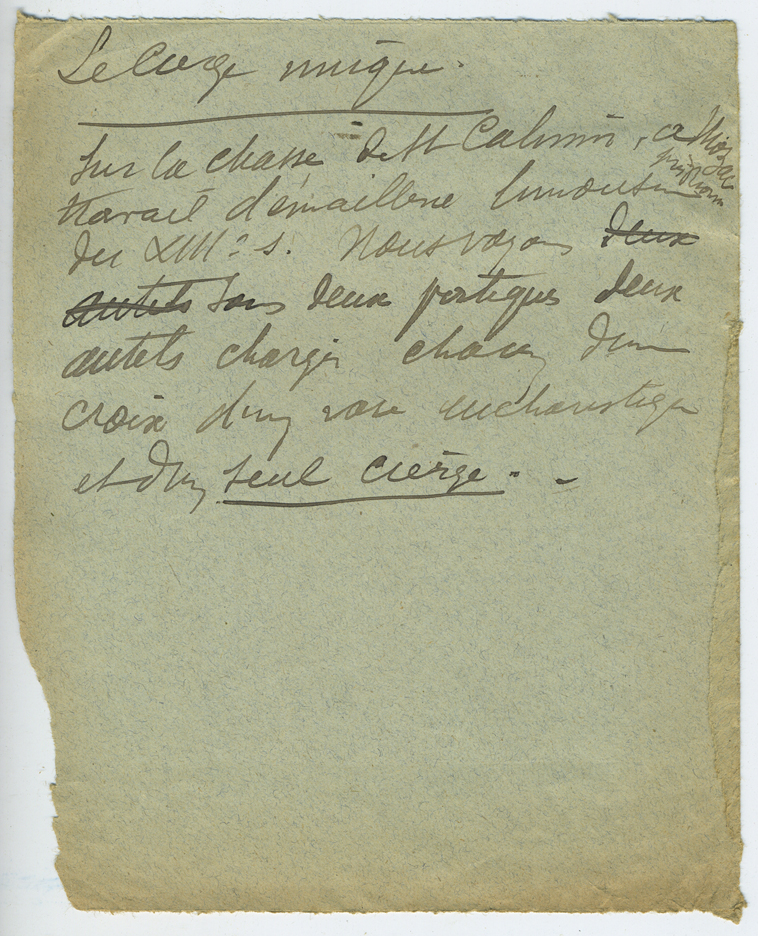 Le Cierge unique.
Sur la chasse de St Calmin, à Mozac
près Riom
travail d'émaillerie limousin
du XIIIe s. Nous voyons deux
autels sous deux portiques deux
autels chargés chacun d'une
croix d'un vase eucharistique
et d'un seul cierge. -